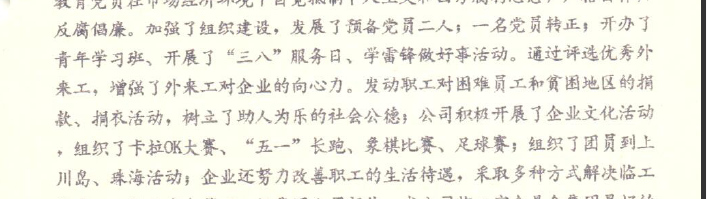 教育党员在市场经济环境下自觉抵制个人主义和
反腐倡廉。加强了组织建设，发展了预备党员二人；一名党员转正；开办了
青年学习班、开展了“三八”服务日、学雷锋做好事活动。通过评选优秀外
来工，增强了外来工对企业的向心力。发动职工对困难员工和贫困地区的捐
款、捐衣活动，树立了助人为乐的社会公德；公司积极开展了企业文化活动
，组织了卡拉OK大赛、“五一”长跑、象棋比赛、足球赛；组织了团员到上
川岛、珠海活动；企业还努力改善职工的生活待遇，采取多种方式解决临工